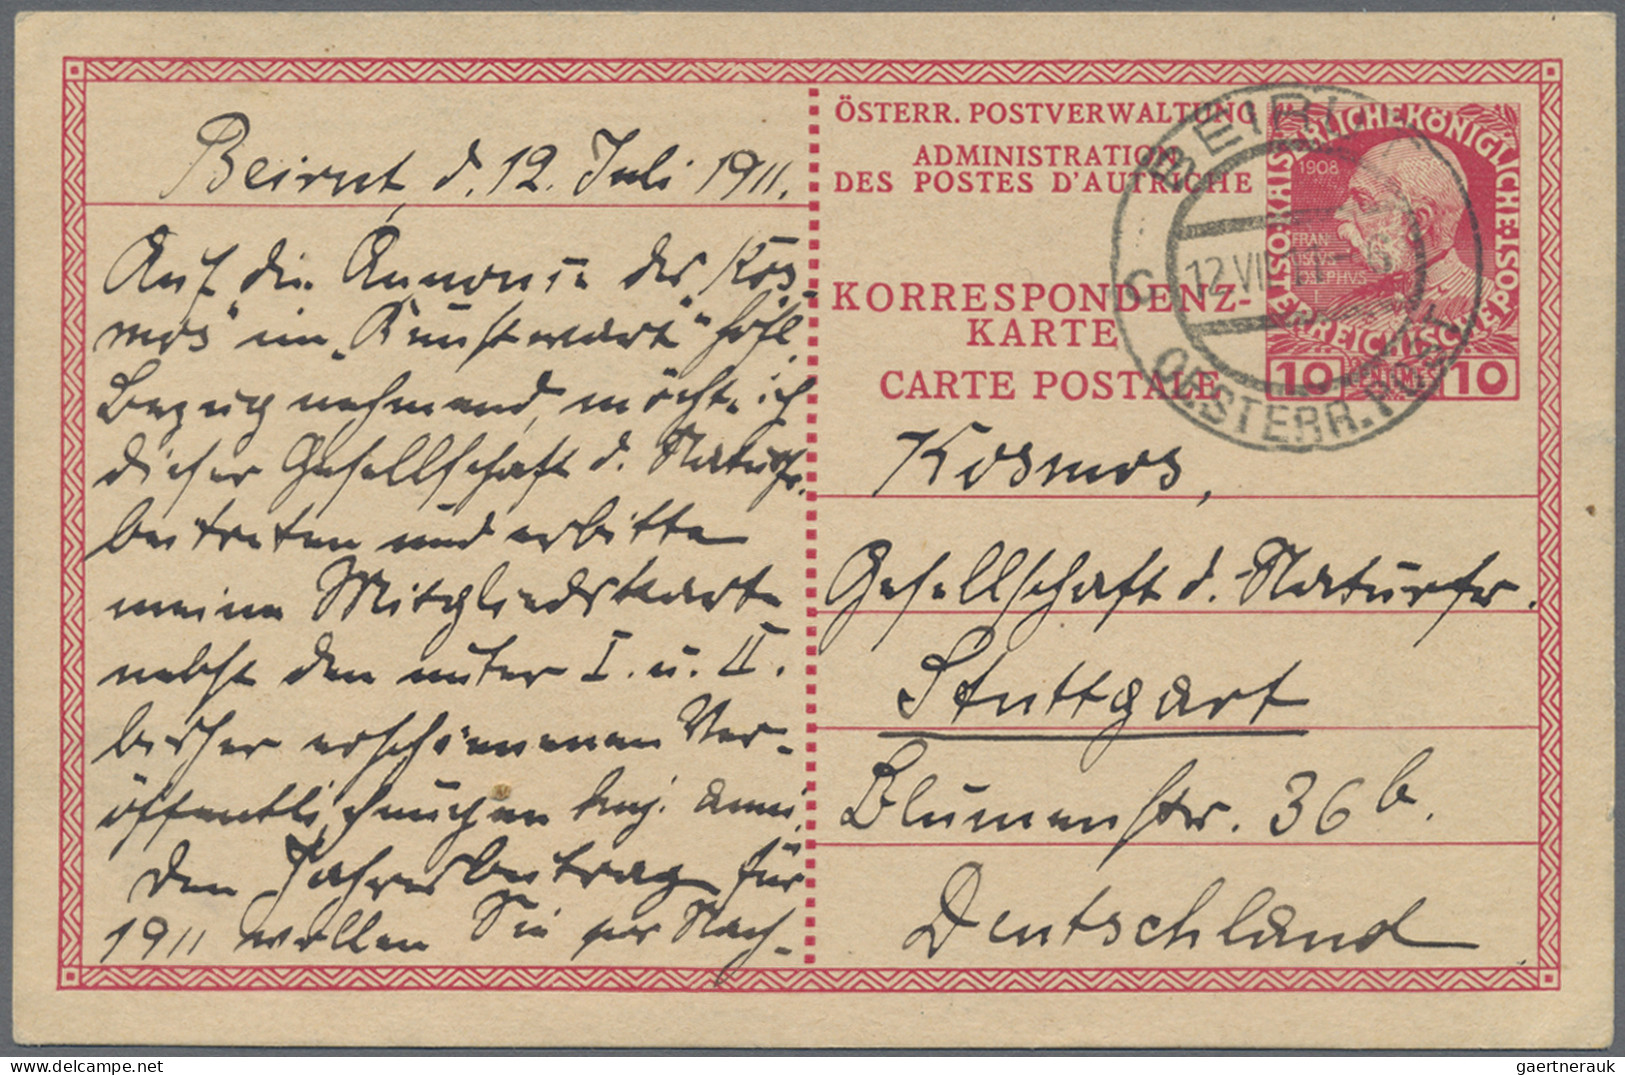 Beirut, d. 12. Juli 1911.
Auf die Annonce des „Kos-
mos“ im „Kunstwart“ höfl.
Bezug nehmend, möchte ich
dieser Gesellschaft d. Naturfr.
beitreten und erbitte
meine Mitgliedskarte
nebst den unter I. u. II.
bisher erschienenen Ver-
öffentlichungen
Den Jahresbeitrag für
1911 wollen Sie per Nach-
ÖSTERR. POSTVERWALTUNG
ADMINISTRATION
DES POSTES D'AUTRICHE
KORRESPONDENZ-
KARTE
CARTE POSTALE
KAISERLICHE KÖNIGLICHE
ÖSTERREICHISCHE POST
1908
FRAN
CISCVS
IOSEPHVS
10 CENTIMES 10
BEIRUT
12 VII 11
OESTERR. POST
Kosmos,
Gesellschaft d. Naturfr.
Stuttgart
Blumenstr. 36 b.
Deutschland
gaertnerauk